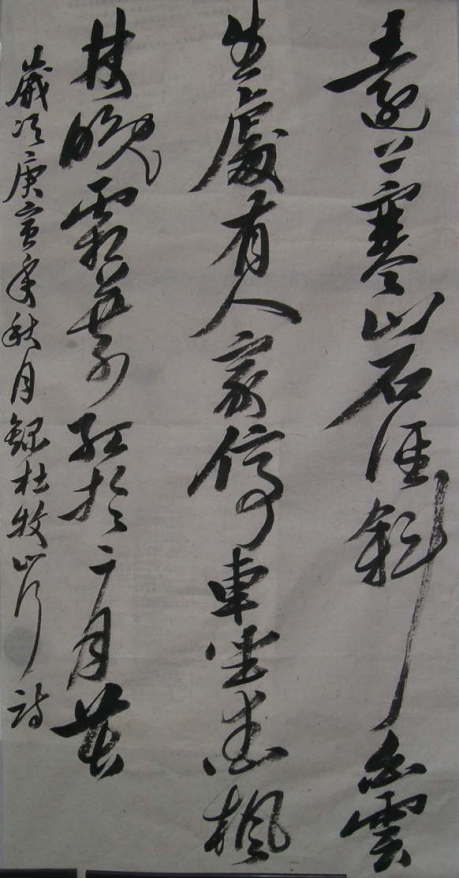 遠上寒山石徑斜白雲
生處有人家停車坐愛楓
林晚霜葉紅於二月花
歲次庚寅年秋月錄杜牧山行詩